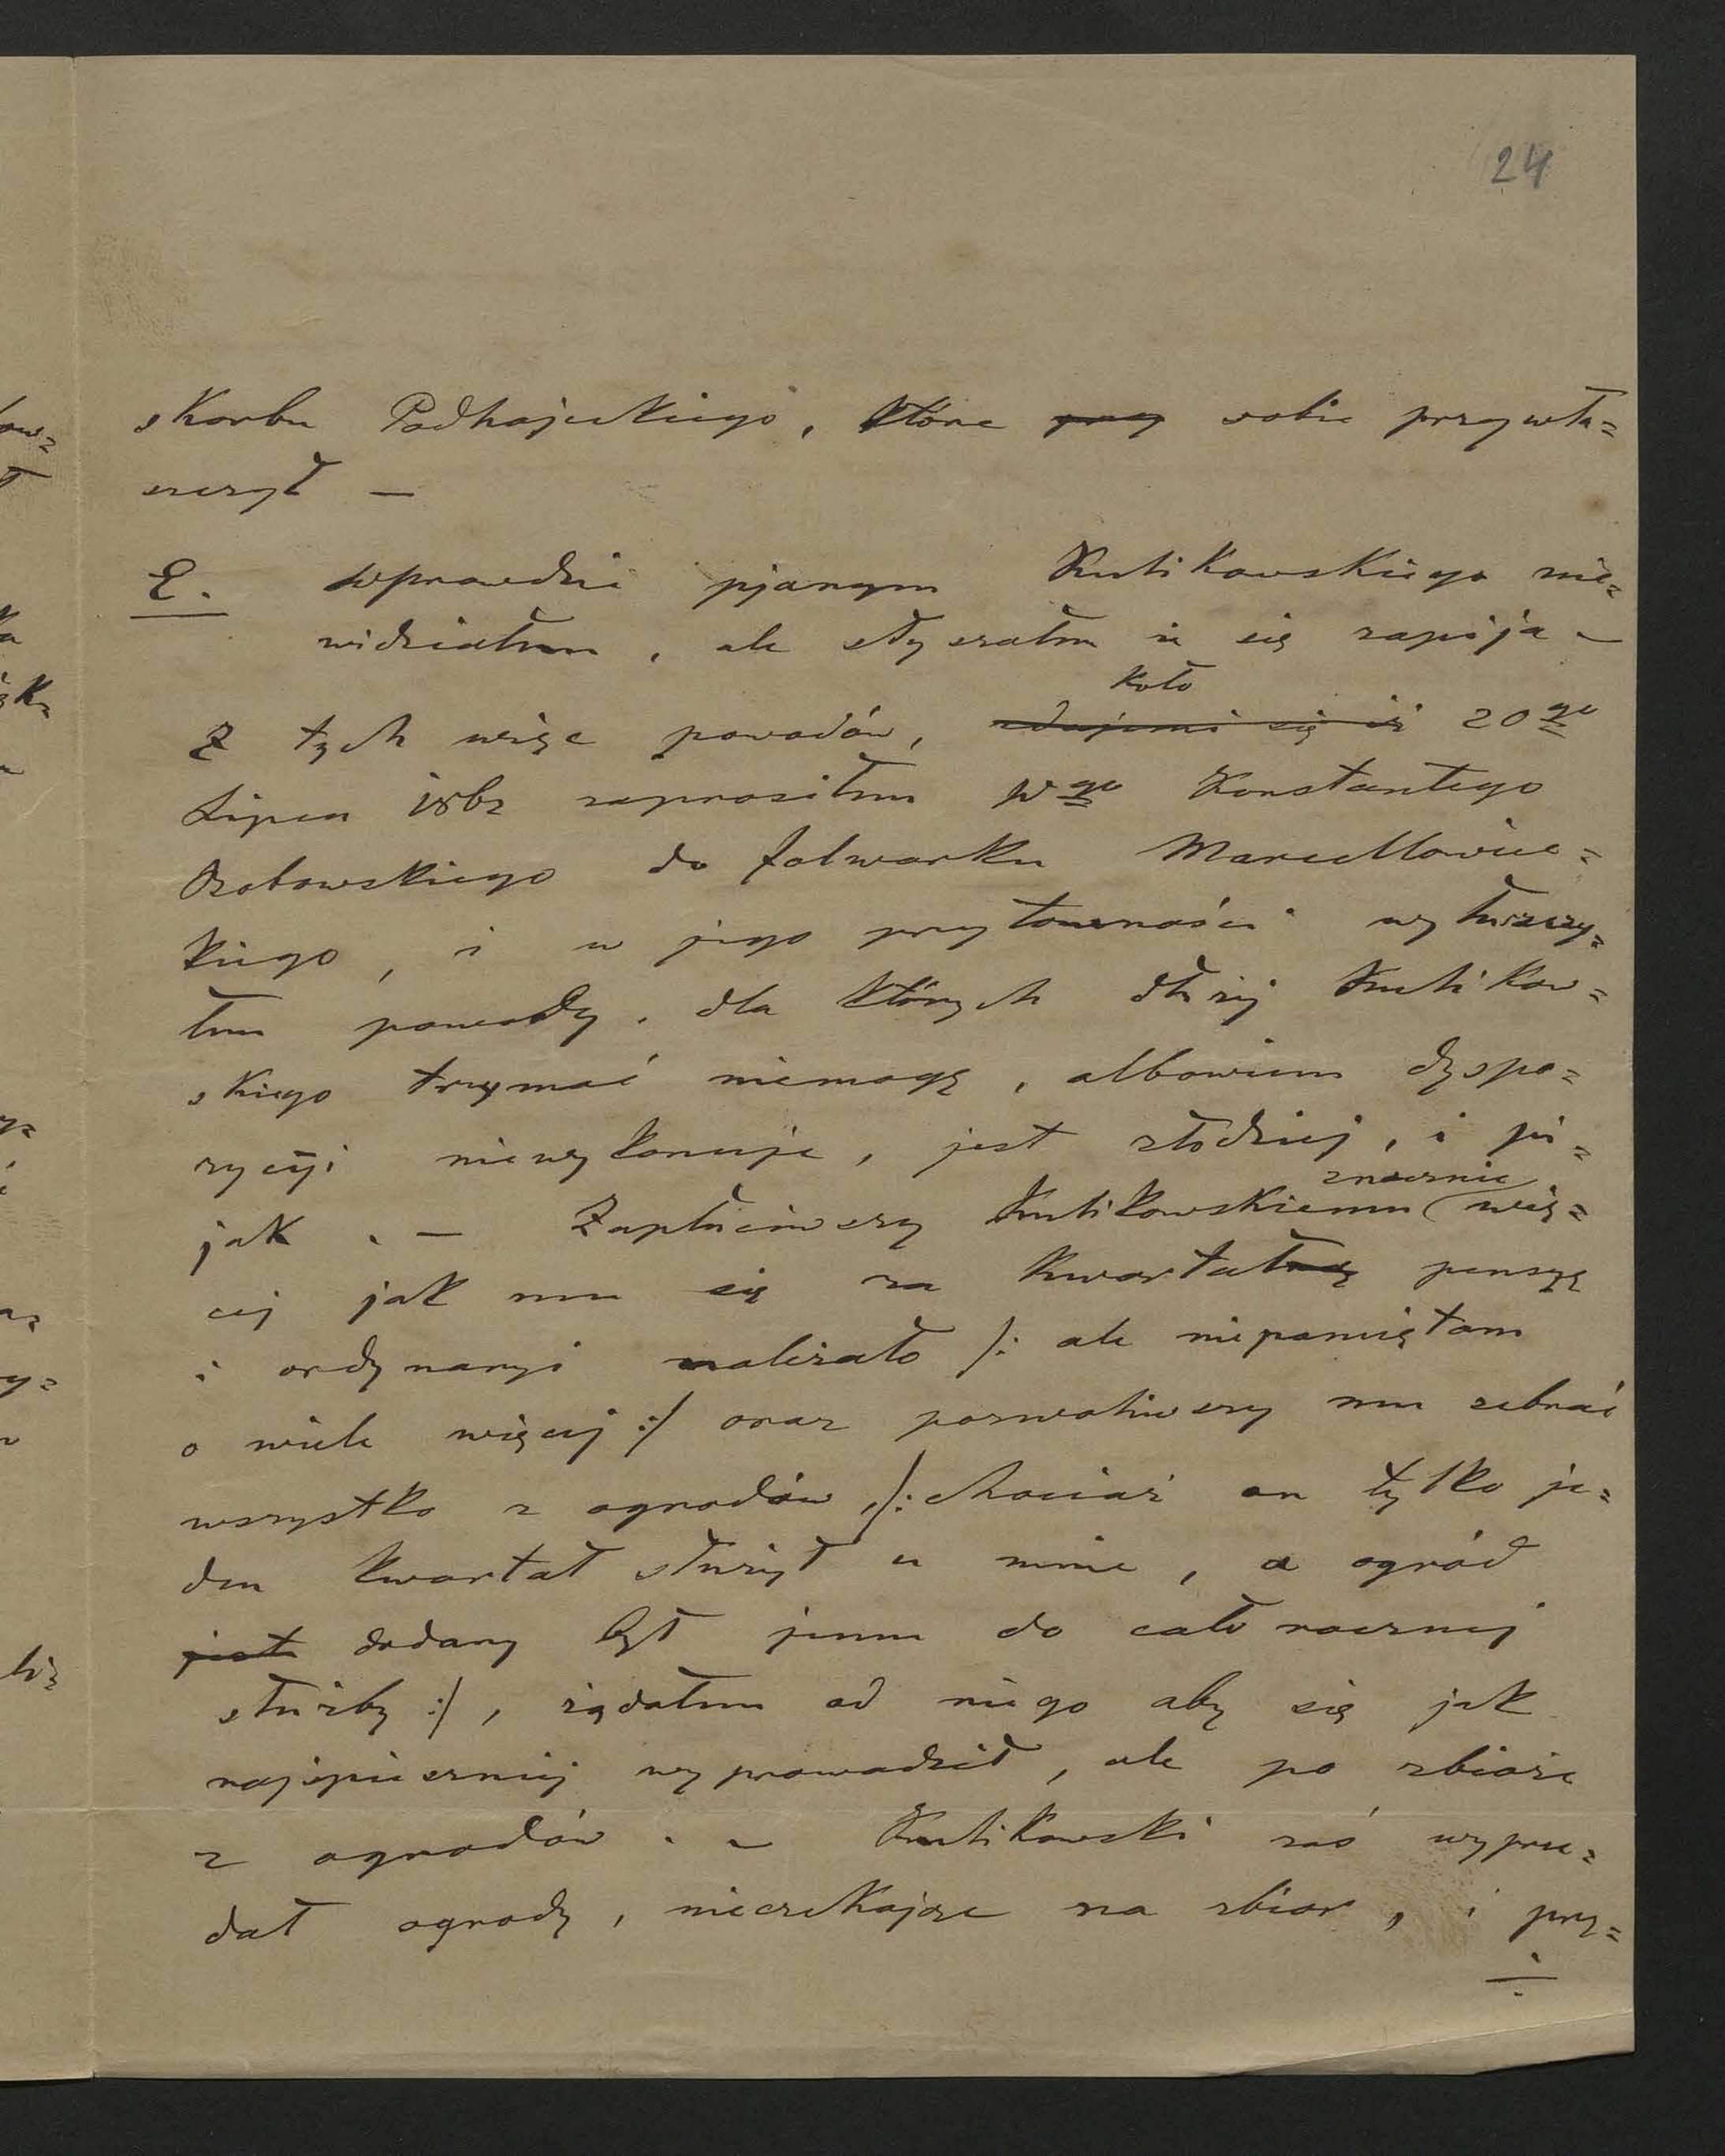 24
skarbu Podhajeckiego, które przy sobie przywła=
szczył —
E. wprawdzie pjanym Kutikowskiego nie=
widziałem, ale słyszałem że się zapija —
koło
Z tych więc powodów, zdajemi się iż 20go
Lipca 1862 zaprosiłem Wgo Konstantego
do folwarku Marcellowiec=
kiego, i w jego przytomności wyłuszczy=
łem powody, dla których dłużej Kutikow=
skiego trzymać niemogę, albowiem dyspo=
zycyi niewykonuje, jest złodziej, i pi=
jak. — Zapłaciwszy Kutikowskiemu znacznie wię=
cej jak mu się za kwartalną pensyę
i ordynaryi należało /: ale niepamiętam
o wiele więcej :/ oraz pozwoliwszy mu zebrać
wszystko z ogrodów, /: chociaż on tylko je=
den kwartał służył u mnie, a ogród
jest dodany był jemu do całorocznej
służby :/, żądałem od niego aby się jak
najspieszniej wyprowadził, ale po zbiorze
z ogrodów. — Kutikowski zaś wyprze=
dał ogrody, nieczekając na zbior, i przy=